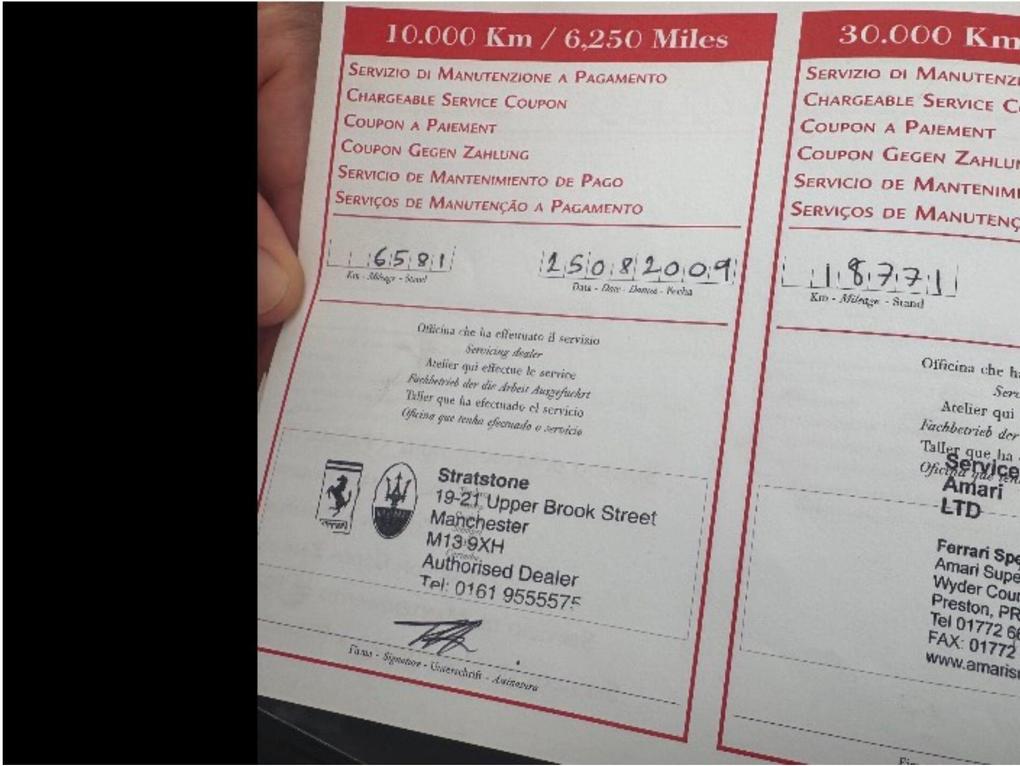 10.000 Km / 6,250 Miles
Servizio di Manutenzione a Pagamento
Chargeable Service Coupon
Coupon a Paiement
Coupon Gegen Zahlung
Servicio de Mantenimiento de Pago
Serviços de Manutenção a Pagamento
6581
25082009
Km - Mileage - Stand
Data - Date - Datum - Fecha
Officina che ha effettuato il servizio
Servicing dealer
Atelier qui effectue le service
Fachbetrieb der die Arbeit Ausgefuckrt
Taller que ha efectuado el servicio
Oficina que tenha efectuado o servicio
Ferrari
Stratstone
19-21 Upper Brook Street
Manchester
M13 9XH
Authorised Dealer
Tel: 0161 9555575
Firma - Signature - Unterschrift - Assinatura
30.000 Km
Servizio di Manutenzi
Chargeable Service Co
Coupon a Paiement
Coupon Gegen Zahlun
Servicio de Mantenim
Serviços de Manutenç
18771
Km - Mileage - Stand
Officina che ha
Serv
Atelier qui
Fachbetrieb der
Taller que ha
Oficina que ten
Service
Amari
LTD
Ferrari Spe
Amari Supe
Wyder Cour
Preston, PR
Tel 01772 66
FAX: 01772
www.amaris